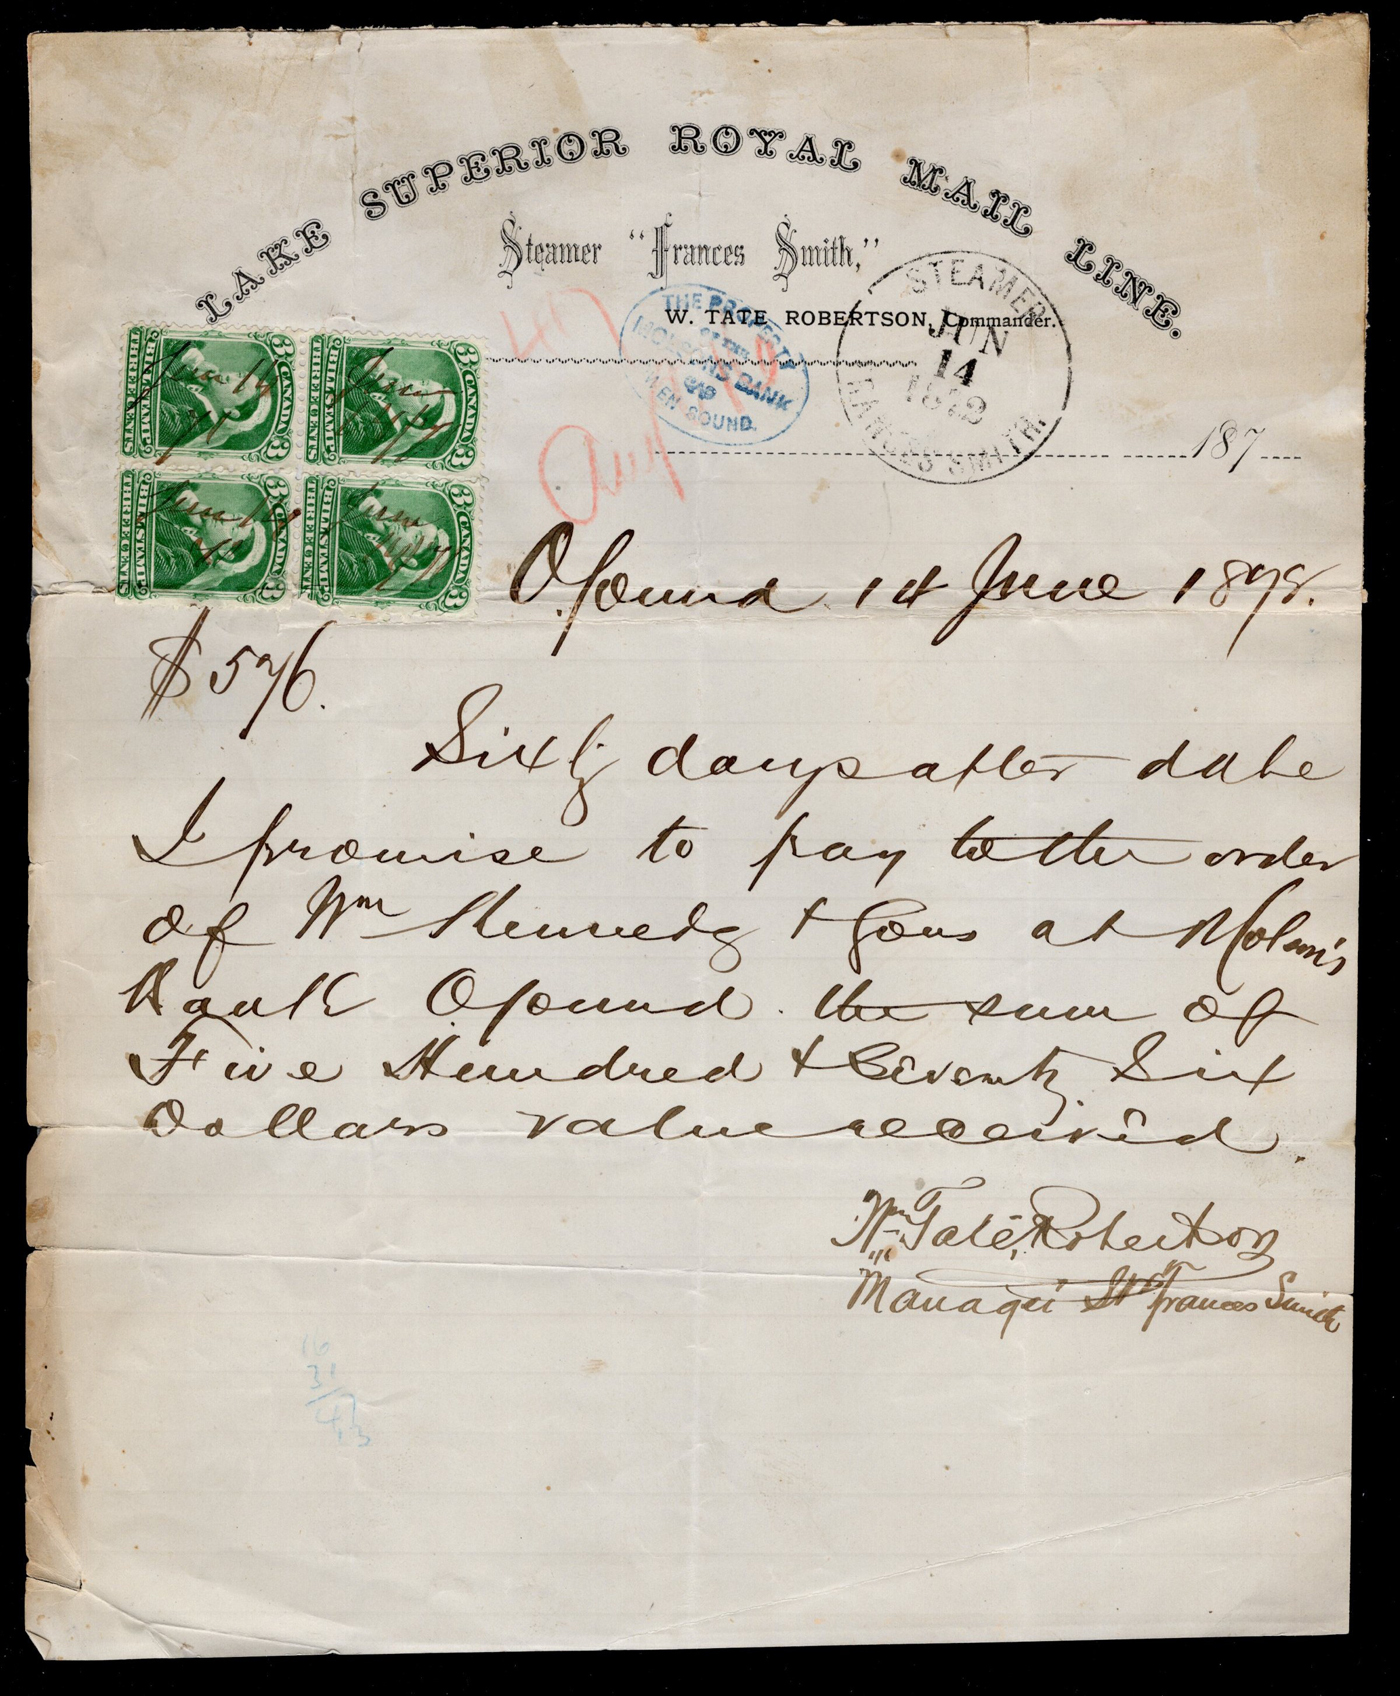 LAKE SUPERIOR ROYAL MAIL LINE.
Steamer "Frances Smith,"
W. TATE ROBERTSON, Commander.
STEAMER
JUN
14
FRANCES SMITH.
THE PROPERTY
OF THE
MOLSONS BANK
OWEN SOUND.
187
CANADA
BILL STAMP
THREE CENTS
3
June 14
CANADA
BILL STAMP
THREE CENTS
3
June
CANADA
BILL STAMP
THREE CENTS
3
June 14
CANADA
BILL STAMP
THREE CENTS
3
June
Aug
O. Sound 14 June 1878.
$576.
Sixty days after date
I promise to pay to the order
of Wm Kennedy & Sons at Molson's
Bank O. Sound. the sum of
Five Hundred & Seventy Six
Dollars value received.
Wm Tate Robertson
Manager Str "Frances Smith
16
31